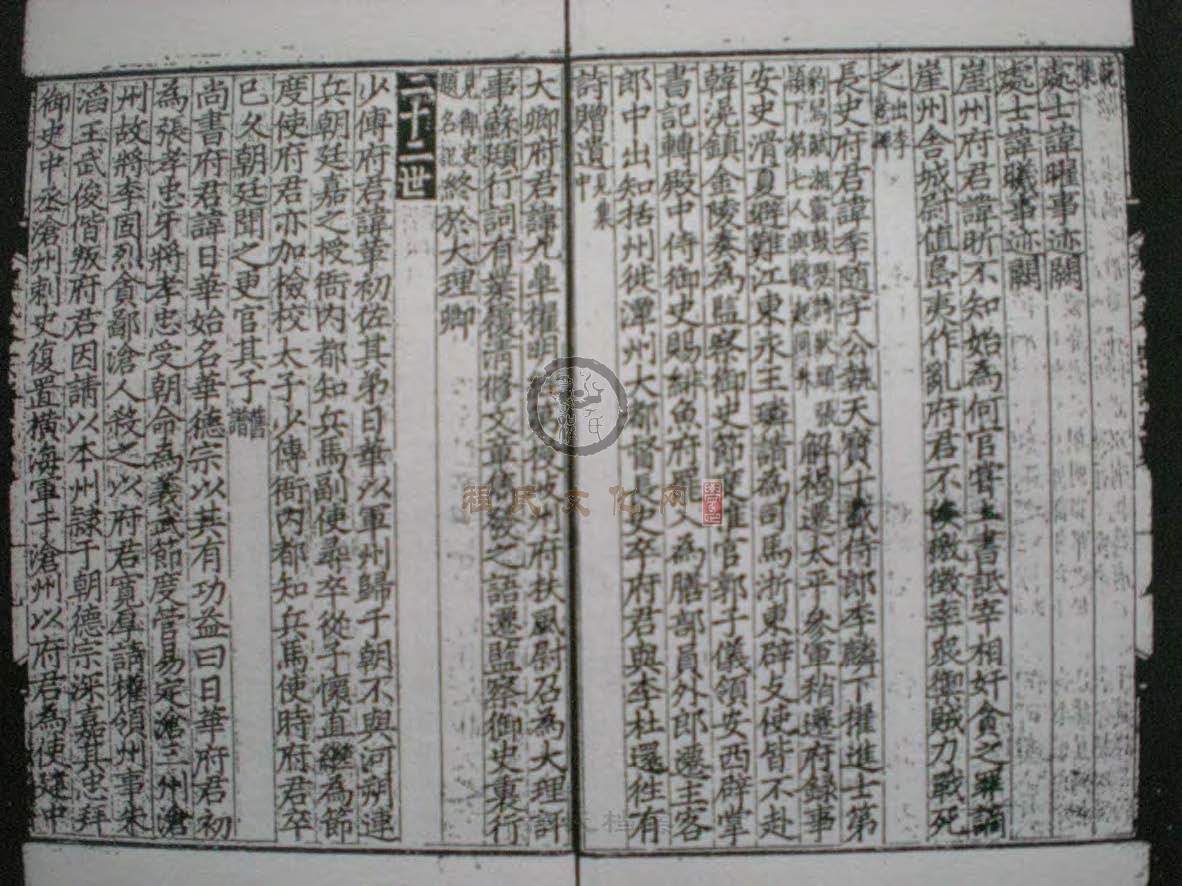 集
處士諱曜事迹闕
處士諱曦事迹闕
崖州府君諱昕不知始為何官嘗上書詆宰相奸貪之罪謫
崖州舍城尉值島夷作亂府君不俟檄徵率眾禦賊力戰死
之
長史府君諱季隨字公 天寶十載侍郎李麟下擢進士第
第七人與錢起同 解褐還太平參軍稍遷府錄事
安史滑夏避難江東永王璘請為司馬浙東辟 使皆不赴
韓滉鎮金陵奏為監察御史節度推官郭子儀領安西辟掌
書記轉殿中侍御史賜緋魚府罷入為膳部員外郎遷主客
郎中出知括州徙潭州大都督長史卒府君與李杜還往有
詩贈遺 見集中
大卿府君諱元皐擢明 授坡州府扶風尉召為大理評
事蘇頲行詞有業履清修文章 發之語遷監察御史裏行
見御史題名記 終於大理卿
二十二世
少傅府君諱華初佐其弟日華以軍州歸于朝不與河朔連
兵朝廷嘉之授衙內都知兵馬副使尋卒從子懷直繼為節
度使府君亦加檢校太子少傅衙內都知兵馬使時府君卒
已久朝廷聞之更官其子 舊譜
尚書府君諱日華始名華德宗以其有功益曰日華府君初
為張孝忠牙將孝忠受朝命為義武節度管易定滄三州滄
州故將李固烈貪鄙滄人殺之以府君寬厚請權領州事朱
滔王武俊偕叛府君因請以本州隸于朝德宗深嘉其忠拜
御史中丞滄州刺史復置橫海軍于滄州以府君為使建中
程氏文化网